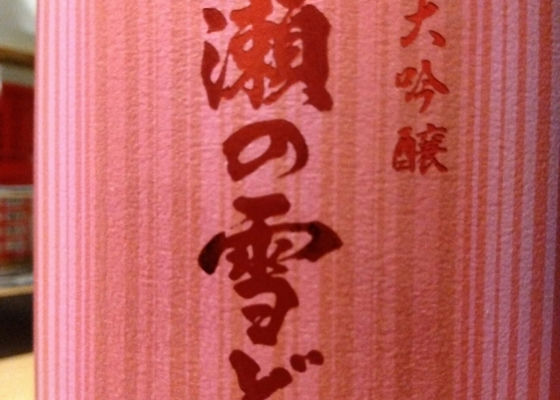 大吟醸
瀬の雪ど